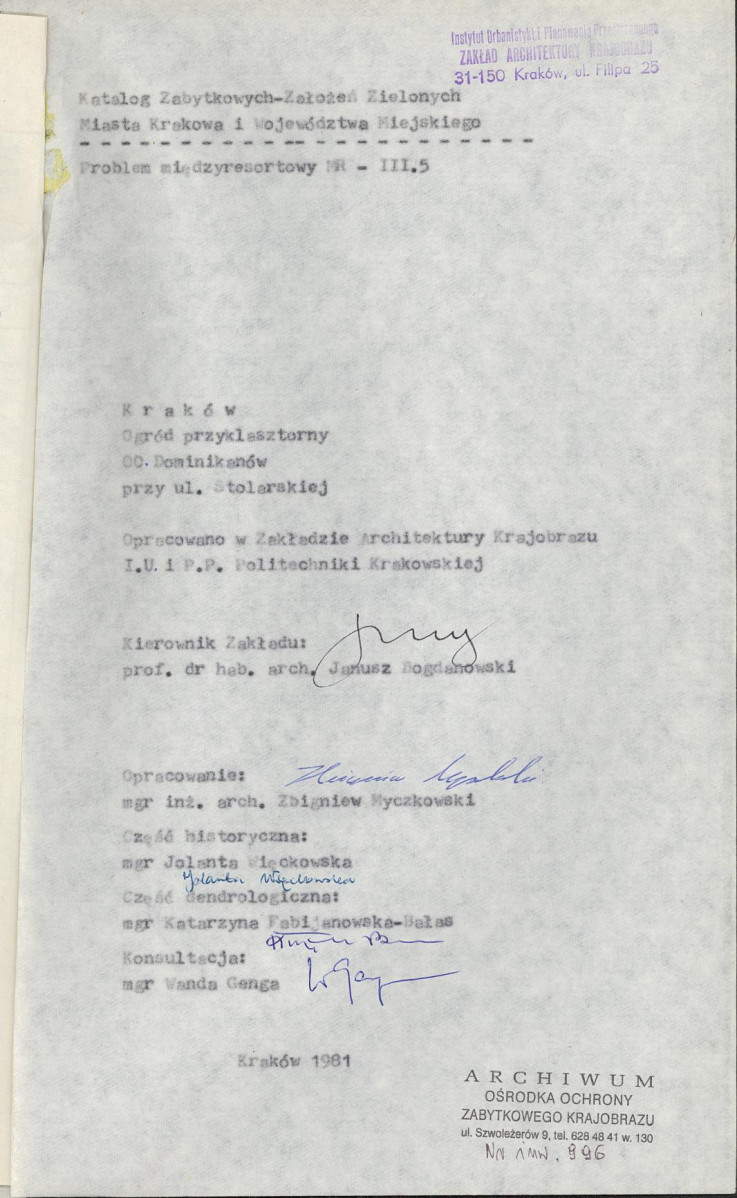 Instytut Urbanistyki i Planowania Przestrzennego
ZAKŁAD ARCHITEKTURY KRAJOBRAZU
31-150 Kraków, ul. Filipa 25
Katalog Zabytkowych-Założeń Zielonych
Miasta Krakowa i Województwa Miejskiego
Problem międzyresortowy MR - III.5
K r a k ó w
Ogród przyklasztorny
OO. Dominikanów
przy ul. Stolarskiej
Opracowano w Zakładzie Architektury Krajobrazu
I.U. i P.P. Politechniki Krakowskiej
Kierownik Zakładu:
prof. dr hab. arch. Janusz Bogdanowski
Opracowanie:
mgr inż. arch. Zbigniew Myczkowski
Część historyczna:
mgr Jolanta Więckowska
Jolanta Więckowska
Część dendrologiczna:
mgr Katarzyna Fabijanowska-Bałas
Konsultacja:
mgr Wanda Genga
Kraków 1981
ARCHIWUM
OŚRODKA OCHRONY
ZABYTKOWEGO KRAJOBRAZU
ul. Szwoleżerów 9, tel. 628 48 41 w. 130
Nr inw. 996